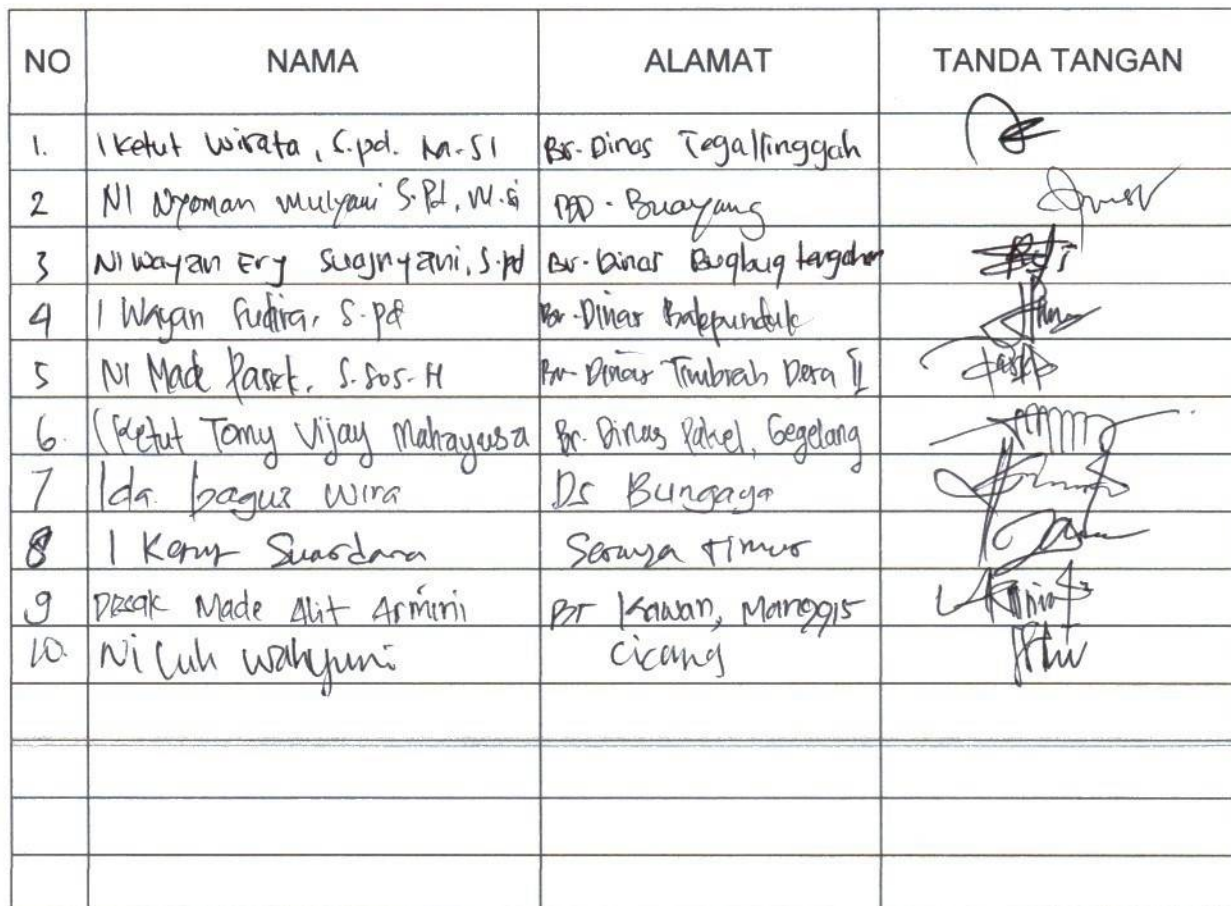 NO NAMA ALAMAT TANDA TANGAN
1. I Ketut Wirata, S.pd. M.SI Br. Dinas Tegallinggah
2 NI Nyoman Mulyani S.Pd, M.si PBD - Buayang
3 Ni Wayan Ery Suajnyani, S.pd Br. Dinas Bugbug tengahan
4 I Wayan Sudira, S.Pd Br. Dinas Bakpunduk
5 NI Made Pasek, S.Sos.H Br. Dinas Timbrah Desa II
6. I Ketut Tomy Vijay Mahayusa Br. Dinas Pakel, Gegelang
7 Ida bagus Wira Ds Bungaya
8 I Ketut Suardana Seraya timur
9 Desak Made Alit Armini Br Kawan, Manggis
10. Ni Luh Wahyuni Cicang